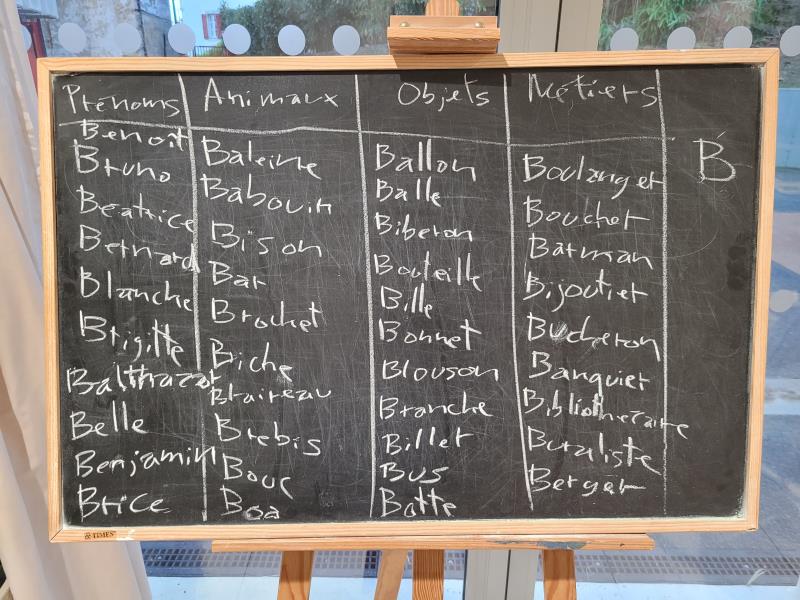 Prénoms Animaux Objets Métiers
B
Benoit
Bruno
Béatrice
Bernard
Blanche
Brigitte
Balthazar
Belle
Benjamin
Brice
Baleine
Babouin
Bison
Bar
Brochet
Biche
Blaireau
Brebis
Bouc
Boa
Ballon
Balle
Biberon
Bouteille
Bille
Bonnet
Blouson
Branche
Billet
Bus
Batte
Boulanger
Boucher
Barman
Bijoutier
Bucheron
Banquier
Bibliothécaire
Buraliste
Berger
TIMES